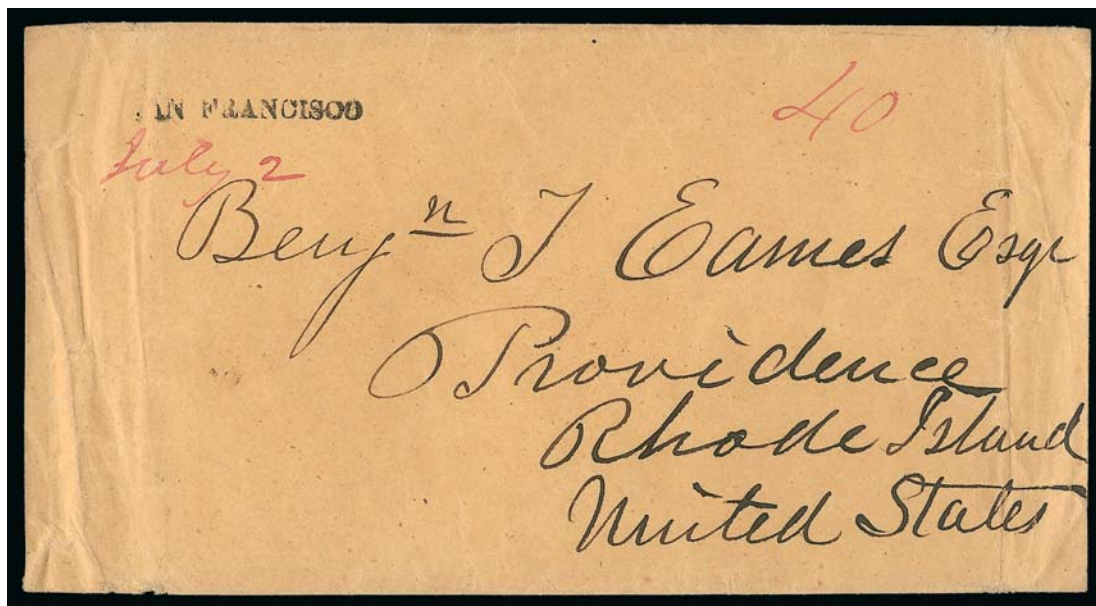 SAN FRANCISCO
40
July 2
Benjn J Eames Esqr
Providence
Rhode Island
United States